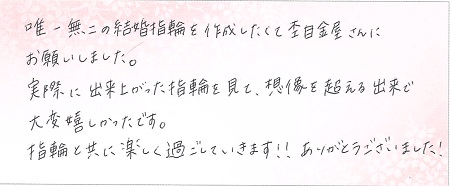 唯一無二の結婚指輪を作成したくて杢目金屋さんに
お願いしました。
実際に出来上がった指輪を見て、想像を超える出来で
大変嬉しかったです。
指輪と共に楽しく過ごしていきます!! ありがとうございました!